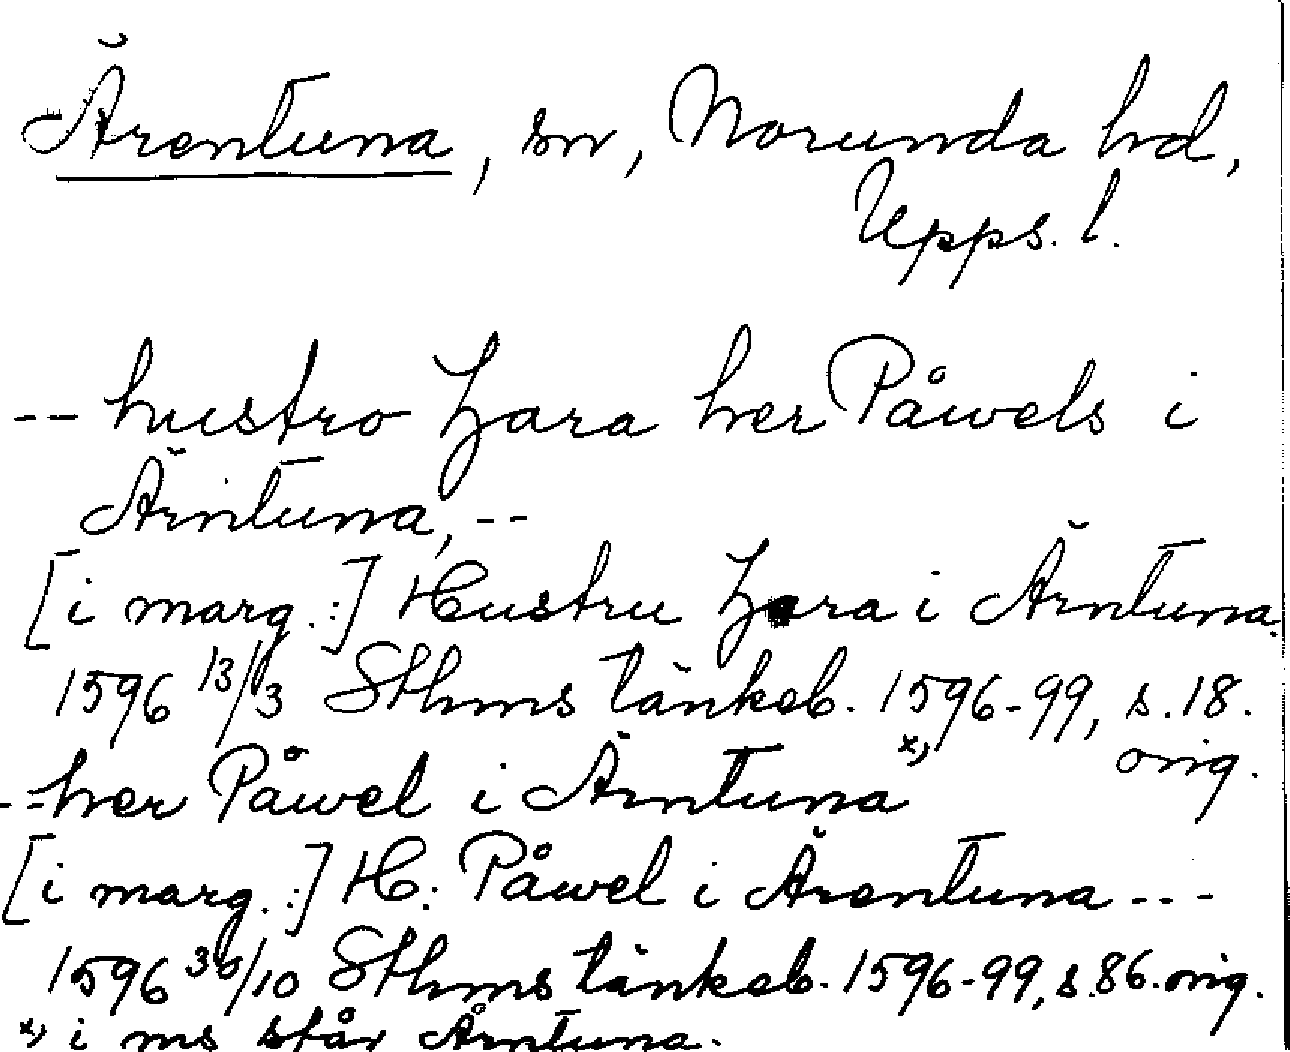 Ärentuna, sn, Norunda hd,
Upps. l.
-- hustro Zara her Påwels i
Ärntuna, --
[i marg.:] Hustru Zara i Ärntuna.
1596 13/3 Sthms tänkeb. 1596-99, s. 18.
orig.
--her Påwel i Ärntuna x)
[i marg.:] H. Påwel i Ärentuna ---
1596 30/10 Sthms tänkeb. 1596-99, s. 86. orig.
x) i ms står Årntuna.